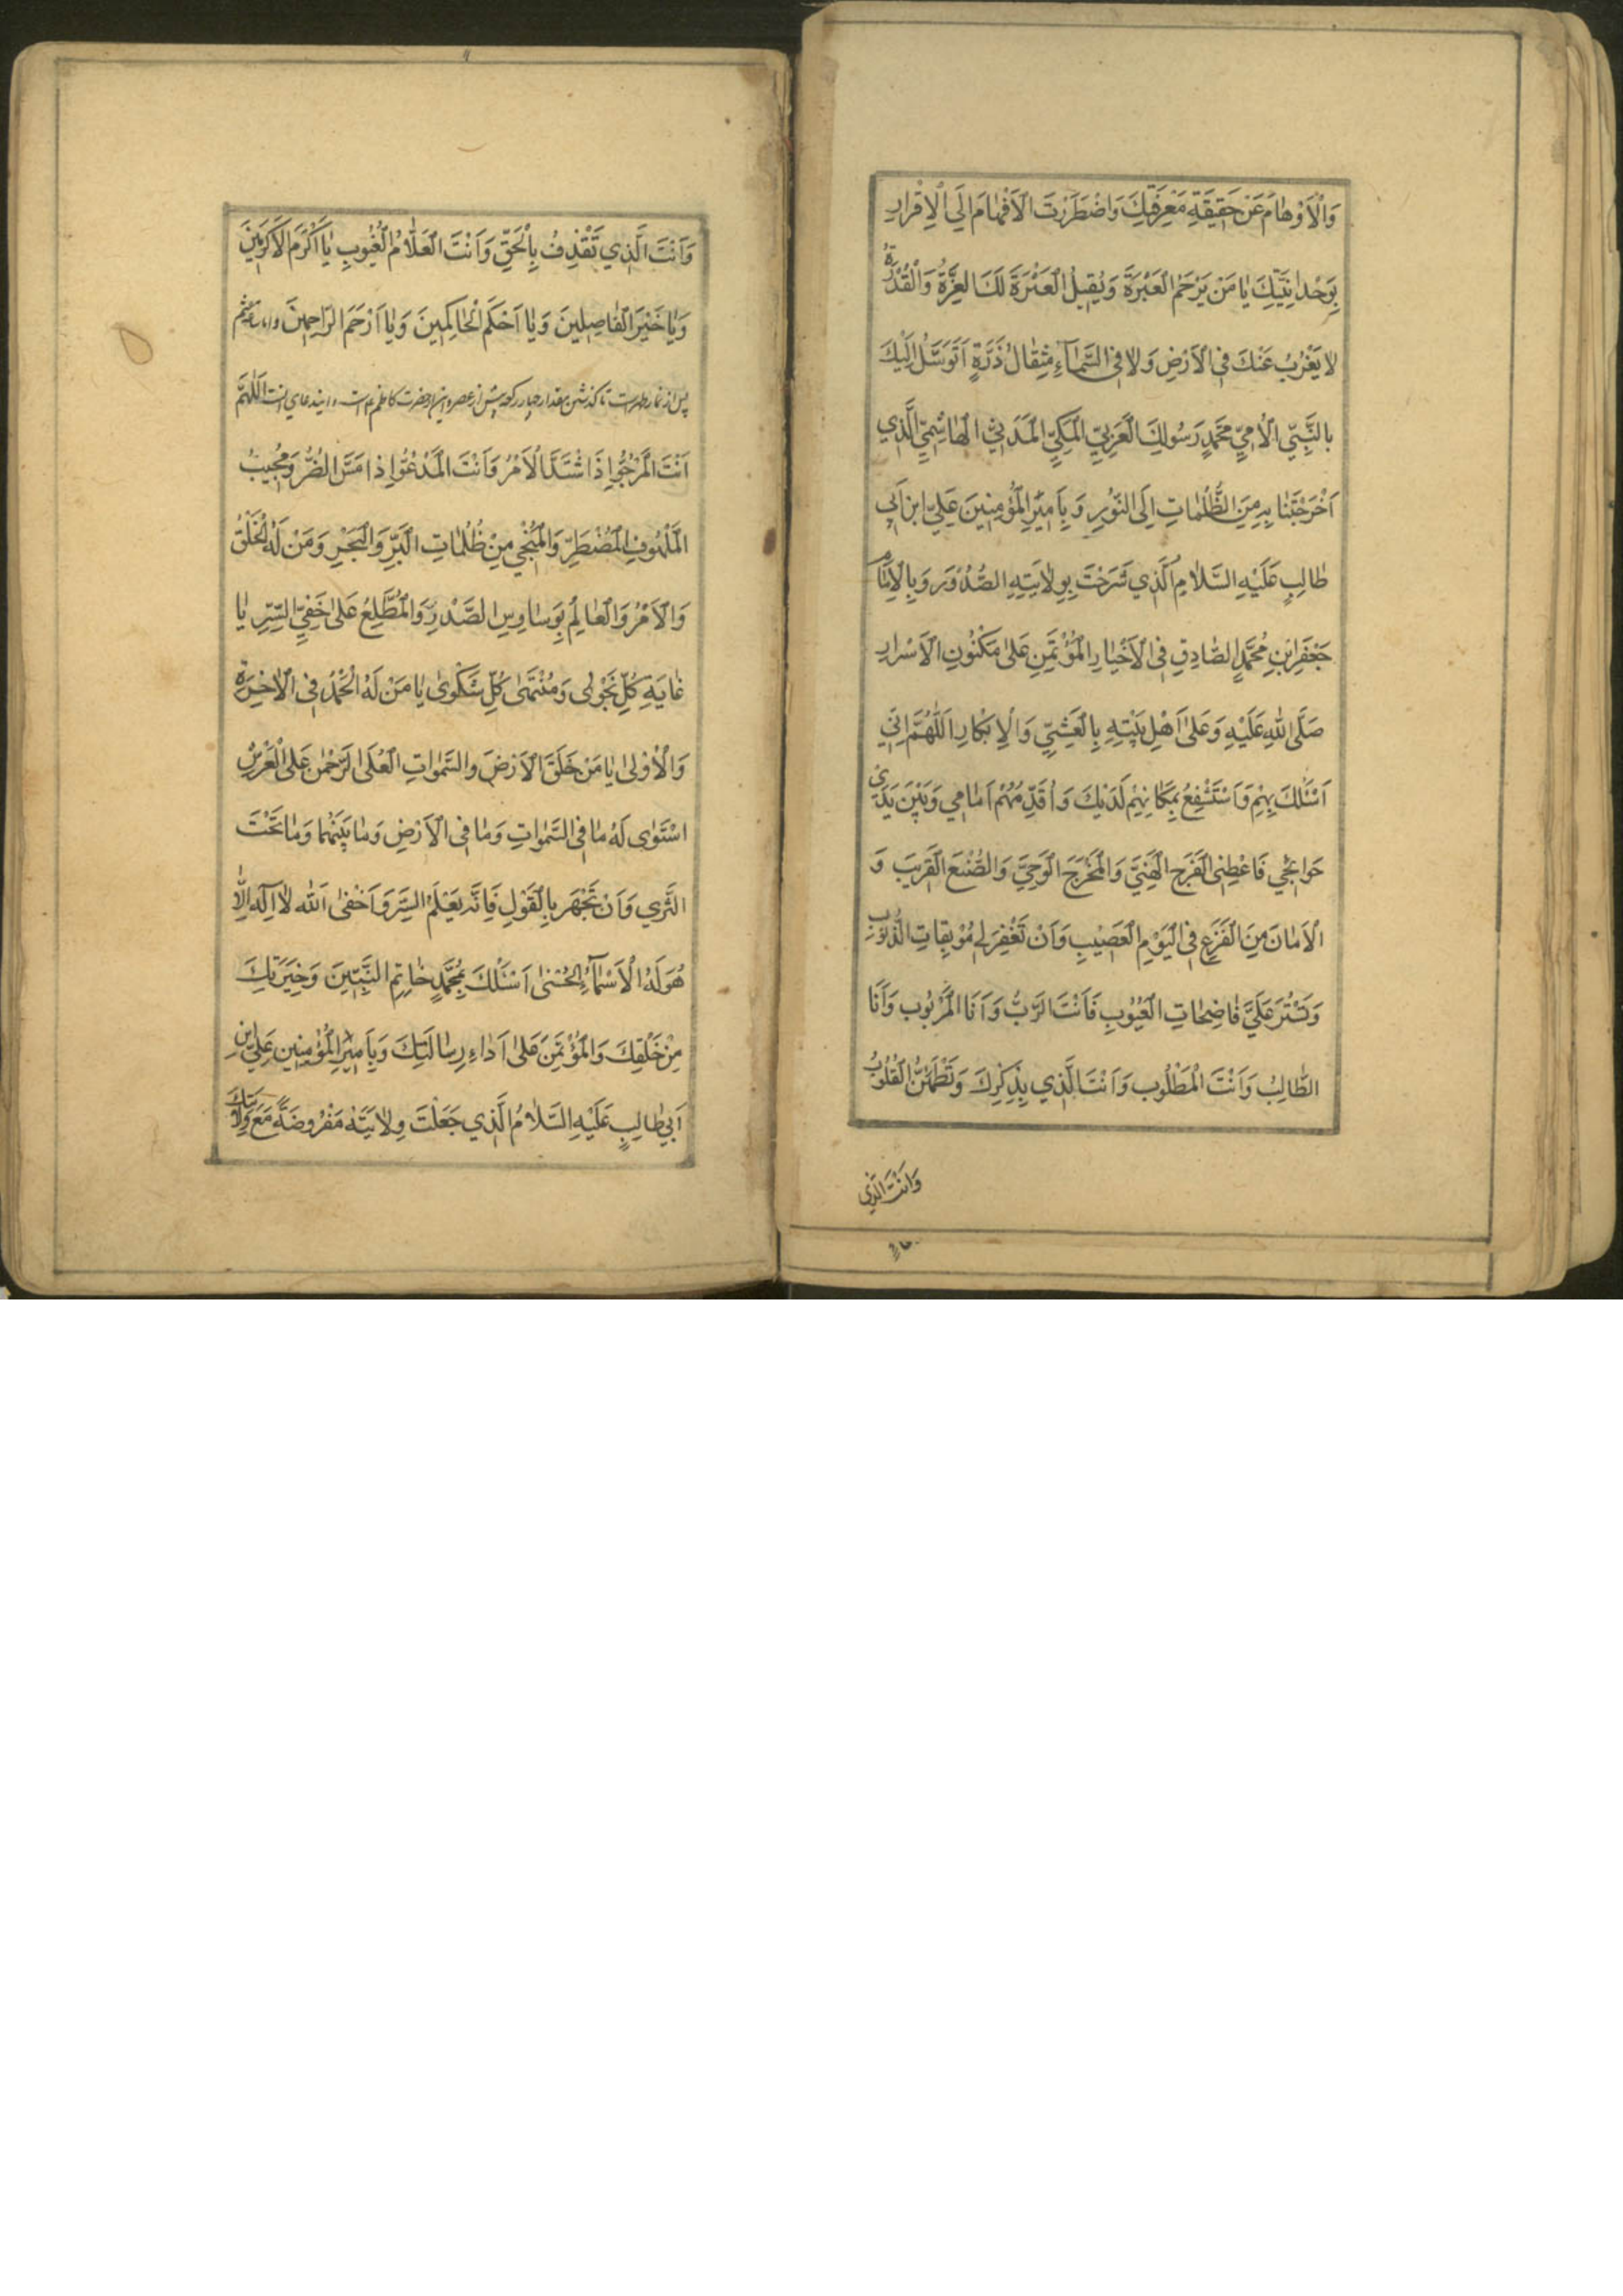 وَالْاَوْهٰامُ عَنْ حَقِيقَةِ مَعْرِفَتِكَ وَاضْطَرَرْتَ الْاَفْهٰامَ اِلَي الْاِقْرٰارِ
بِوَحْدٰانِيَّتِكَ يٰا مَنْ يَرْحَمُ الْعَبْرَةَ وَيُقِيلُ الْعَثْرَةَ لَكَ الْعِزَّةُ وَالْقُدْرَةُ
لا يَعْزُبُ عَنْكَ فِي الْاَرْضِ وَلا فِي السَّمٰآءِ مِثْقٰالُ ذَرَّةٍ اَتَوَسَّلُ اِلَيْكَ
بِالنَّبِيِّ الْاُمِّيِّ مُحَمَّدٍ رَسُولِكَ الْعَرَبِيِّ الْمَكِّيِّ الْمَدَنِيِّ الْهٰاشِمِيِّ الَّذِي
اَخْرَجْتَنٰا بِهِ مِنَ الظُّلُمٰاتِ اِلَى النُّورِ وَبِاَمِيرِ الْمُؤْمِنِينَ عَلِيِّ ابْنِ اَبِي
طٰالِبٍ عَلَيْهِ السَّلٰامُ الَّذِي شَرَحْتَ بِوِلٰايَتِهِ الصُّدُورَ وَبِالْاِمٰامِ
جَعْفَرِ ابْنِ مُحَمَّدٍ الصّٰادِقِ فِي الْاَخْبٰارِ الْمُؤْتَمَنِ عَلىٰ مَكْنُونِ الْاَسْرٰارِ
صَلَّى اللّٰهُ عَلَيْهِ وَعَلىٰ اَهْلِ بَيْتِهِ بِالْعَشِيِّ وَالْاِبْكٰارِ اَللّٰهُمَّ اِنِّي
اَسْئَلُكَ بِهِمْ وَاَسْتَشْفِعُ بِمَكٰانِهِمْ لَدَيْكَ وَاُقَدِّمُهُمْ اَمٰامِي وَبَيْنَ يَدَيْ
حَوٰائِجِي فَاَعْطِنِي الْفَرَجَ الْهَنِيَّ وَالْمَخْرَجَ الْوَحِيَّ وَالصُّنْعَ الْقَرِيبَ وَ
الْاَمٰانَ مِنَ الْفَزَعِ فِي الْيَوْمِ الْعَصِيبِ وَاَنْ تَغْفِرَ لِي مُوبِقٰاتِ الذُّنُوبِ
وَتَسْتُرَ عَلَيَّ فٰاضِحٰاتِ الْعُيُوبِ فَاَنْتَ الرَّبُّ وَاَنَا الْمَرْبُوب وَاَنَا
الطّٰالِبُ وَاَنْتَ الْمَطْلُوب وَاَنْتَ الَّذِي بِذِكْرِكَ وَتَطْمَئِنُّ الْقُلُوبُ
وَاَنْتَ الَّذِي
وَاَنْتَ الَّذِي تَقْذِفُ بِالْحَقِّ وَاَنْتَ الْعَلّٰامُ الْغُيُوبِ يٰا اَكْرَمَ الْاَكْرَمِينَ
وَيٰا خَيْرَ الْفٰاصِلِينَ وَيٰا اَحْكَمَ الْحٰاكِمِينَ وَيٰا اَرْحَمَ الرّٰاحِمِينَ
پس از نماز ظهرست تا گذشتن مقدار چهار ركعت پیش از عصر و این از حضرت كاظم ع است اَللّٰهُمَّ
اَنْتَ الْمَرْجُوُّ اِذَا اشْتَدَّ الْاَمْرُ وَاَنْتَ الْمَدْعُوُّ اِذٰا مَسَّ الضُّرُّ وَمُجِيبُ
الْمَلْهُوفِ الْمُضْطَرِّ وَالْمُنْجِي مِنْ ظُلُمٰاتِ الْبَرِّ وَالْبَحْرِ وَمَنْ لَهُ الْخَلْقُ
وَالْاَمْرُ وَالْعٰالِمُ بِوَسٰاوِسِ الصَّدْرِ وَالْمُطَّلِعُ عَلىٰ خَفِيِّ السِّرِّ يٰا
غٰايَةِ كُلِّ نَجْوىٰ وَمُنْتَهىٰ كُلِّ شَكْوىٰ يٰا مَنْ لَهُ الْحَمْدُ فِي الْاٰخِرَةِ
وَالْاُولىٰ يٰا مَنْ خَلَقَ الْاَرْضَ والسَّمٰوٰاتِ الْعُلَى الرَّحْمٰنُ عَلَى الْعَرْشِ
اسْتَوٰى لَهُ مٰا فِي السَّمٰوٰاتِ وَمٰا فِي الْاَرْضِ وَمٰا بَيْنَهُمٰا وَمٰا تَحْتَ
الثَّرٰي وَاَنْ تَجْهَر بِالْقَوْلِ فَاِنَّهُ يَعْلَمُ السِّرَّ وَاَخْفىٰ اَللّٰه لٰا اِلٰهَ اِلّٰا
هُوَ لَهُ الْاَسْمٰآءُ الْحُسْنىٰ اَسْئَلُكَ بِمُحَمَّدٍ خٰاتِمِ النَّبِيّٖنَ وَخِيَرَتِكَ
مِنْ خَلْقِكَ وَالْمُؤْتَمَنِ عَلىٰ اَدٰاءِ رِسٰالَتِكَ وَبِاَمِيرِ الْمُؤْمِنِين عَلِيِّ ابْنِ
اَبِي طٰالِبٍ عَلَيْهِ السَّلٰامُ الَّذِي جَعَلْتَ وِلٰايَتَهُ مَفْرُوضَةً مَعَ وِلٰايَتِكَ